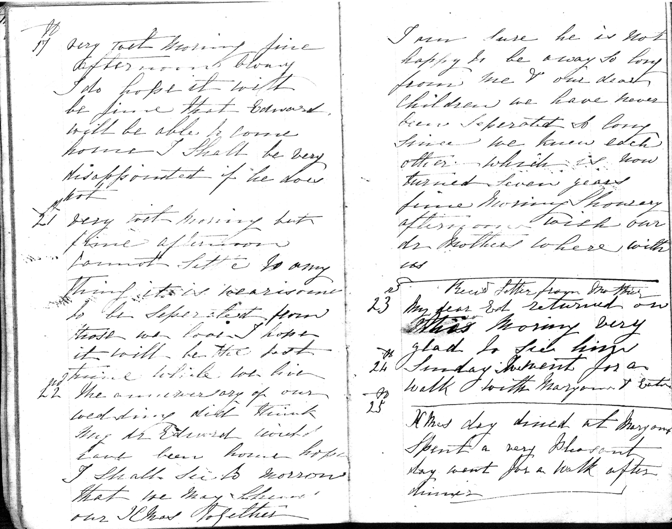 17 very wet Morning fine
afternoon blowy
I do hope it will
be fine that Edward
will be able to come
home I Shall be very
disappointed if he does
not
21 very wet Morning but
fine afternoon
Cannot Settle to any
thing it is wearisome
to be Seperated from
those we love I hope
it will be the last
time while we live
22 The anniversary of our
wedding did think
My dr Edward would
have been home hope
I Shall See to Morrow
that we may
our XMas together
I am Sure he is not
happy to be away So long
from me & our dear
Children we have never
been Seperated So long
Since we knew each
other which is now
turned Seven years
fine Morning Showery
afternoon wish our
dr Mothers where with
us
Recd letter from Mother
23 My dear Ed returned on
this Morning very
glad to See him
24 Sunday went for a
walk with Maryann &
25 XMas day dined at Maryanns
Spent a very pleasant
day went for a walk after
dinner